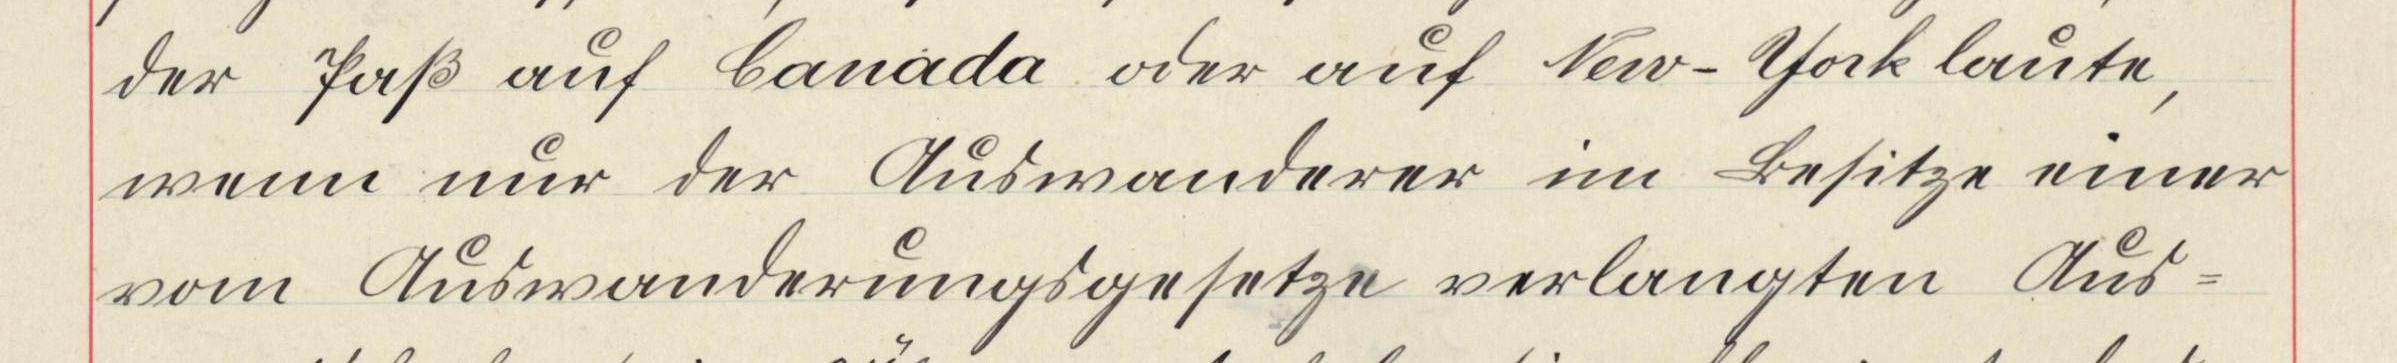 der Paß auf Canada oder auf New-York laute,
wenn nur der Auswanderer im Besitze einer
vom Auswanderungsgesetze verlangten Aus=